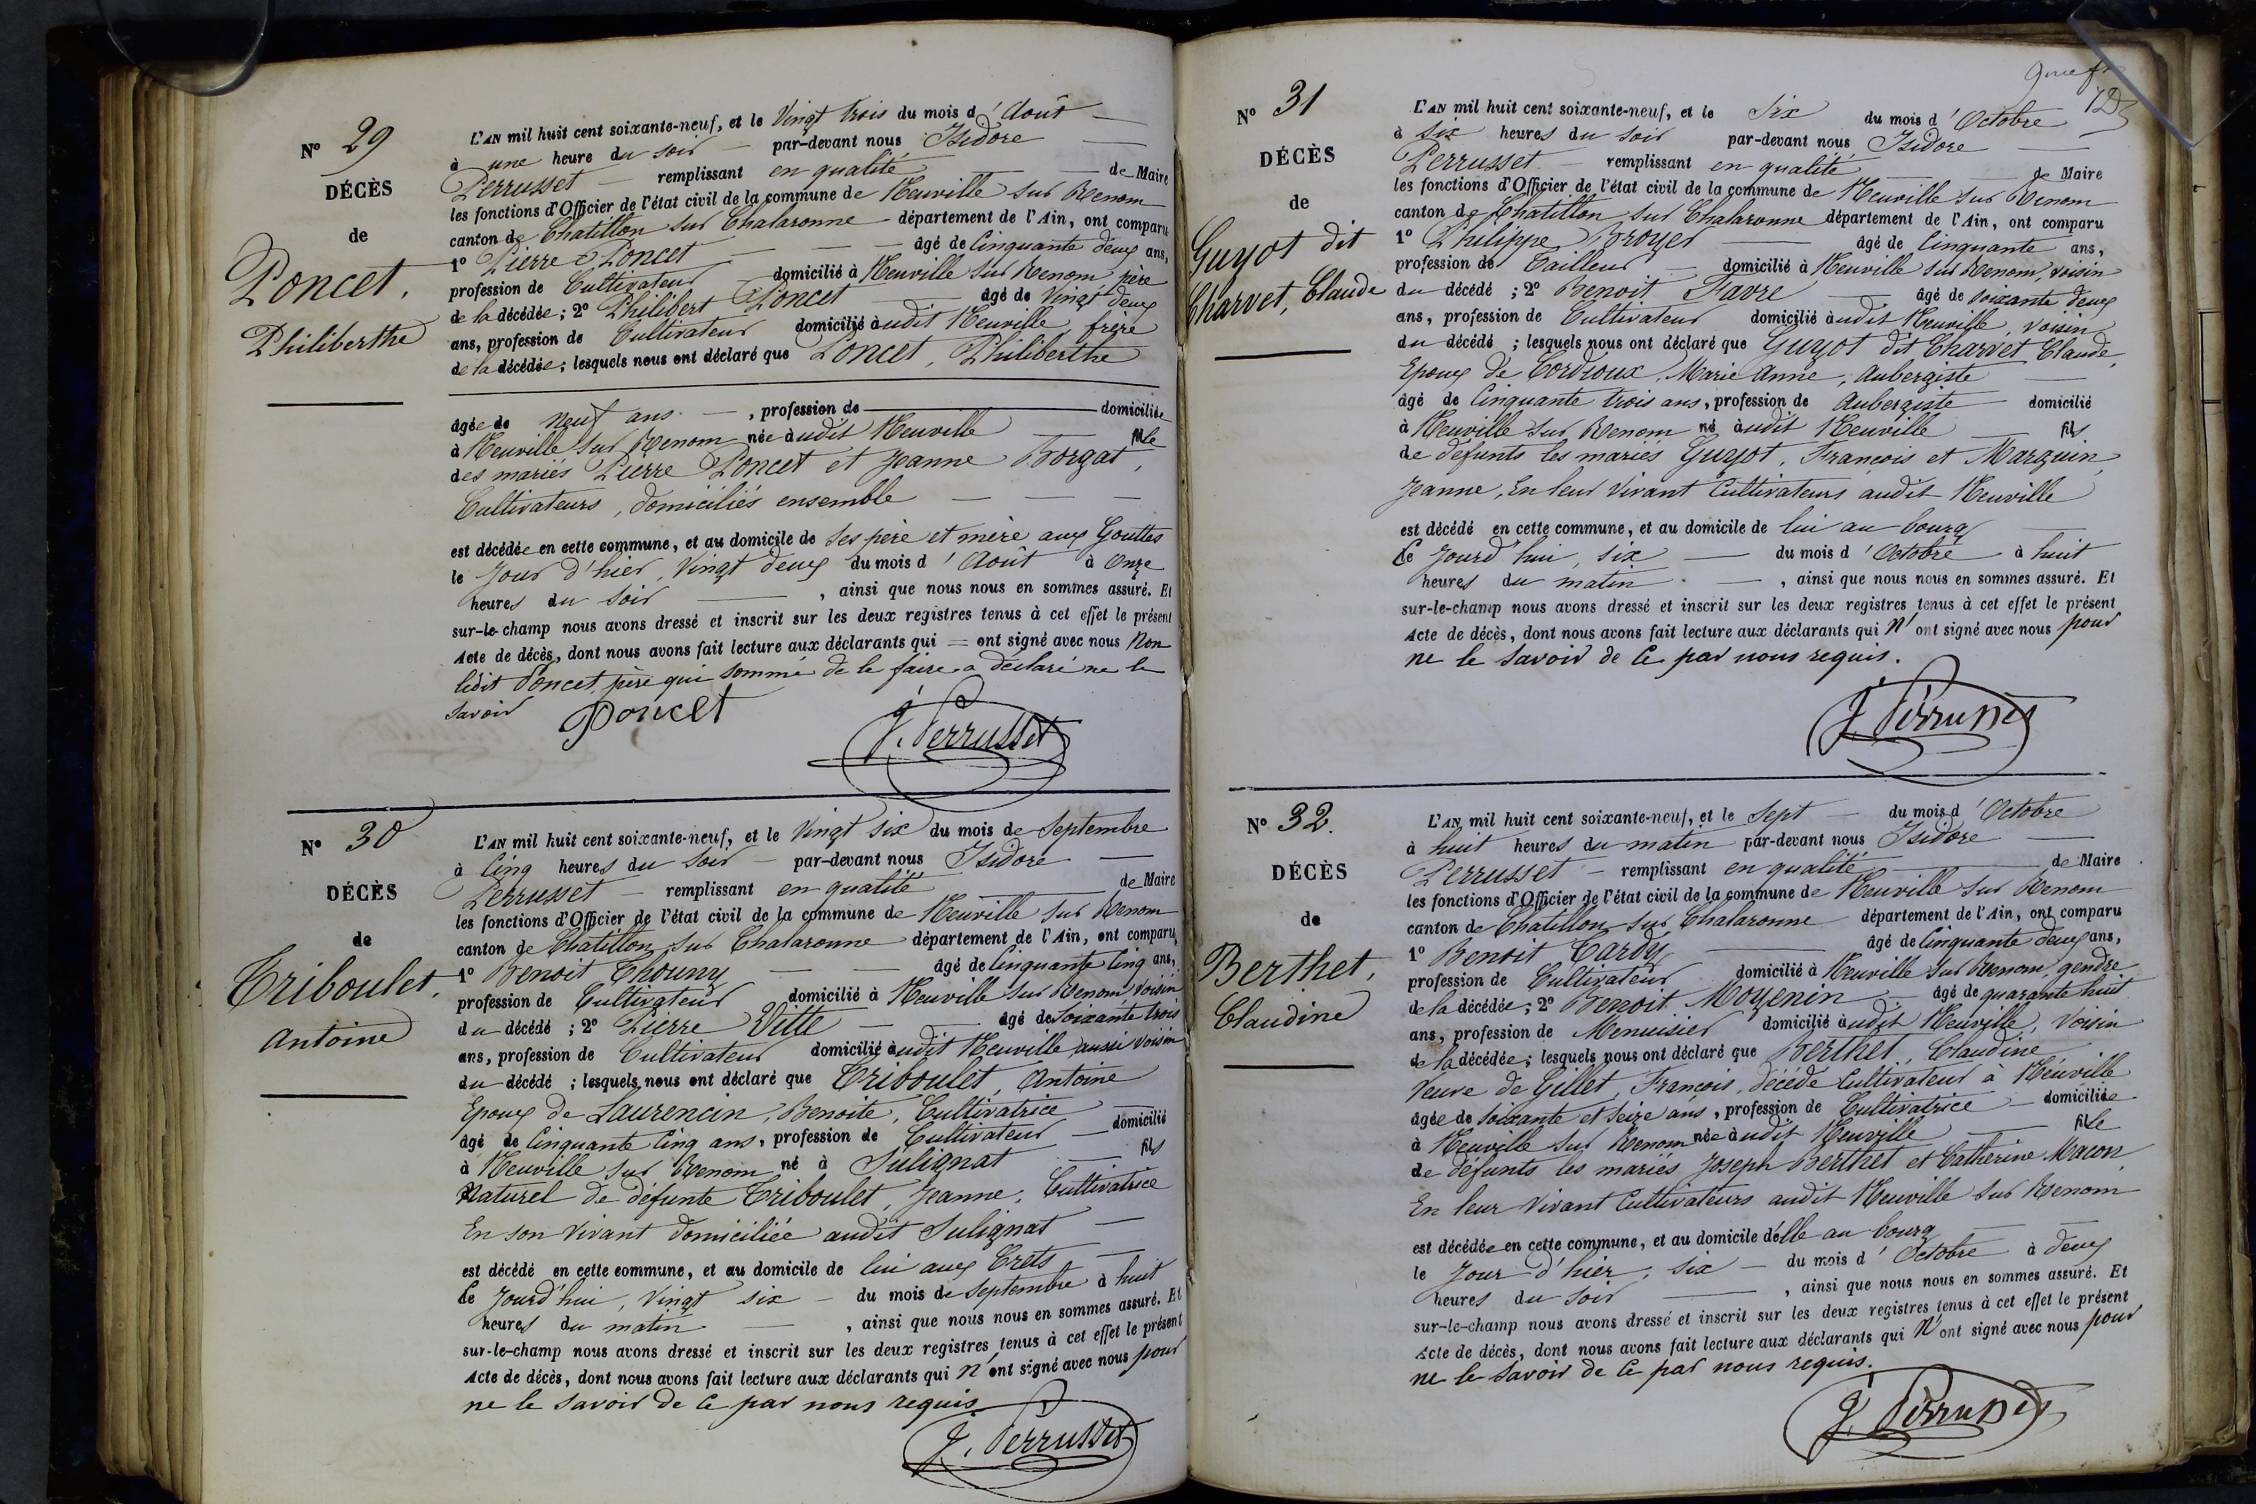 Nº 29
DÉCÈS
de
Poncet,
Philiberthe
L'AN mil huit cent soixante-neuf, et le Vingt trois du mois d'Août
à une heure du soir par-devant nous Isidore
Perrusset remplissant en qualité de Maire
les fonctions d'Officier de l'état civil de la commune de Neuville sur Renom
canton de Chatillon sur Chalaronne département de l'Ain, ont comparu
1º Pierre Poncet âgé de Cinquante deux ans,
profession de Cultivateur domicilié à Neuville sur Renom, père
de la décédée; 2º Philibert Poncet âgé de Vingt deux
ans, profession de Cultivateur domicilié audit Neuville, frère
de la décédée; lesquels nous ont déclaré que Poncet, Philiberthe
âgée de neuf ans, profession de domiciliée
à Neuville sur Renom née audit Neuville fille
des mariés Pierre Poncet et Jeanne Borgat,
Cultivateurs, domiciliés ensemble
est décédée en cette commune, et au domicile de ses père et mère aux Gouttes
le Jour d'hier, Vingt deux du mois d'Août à onze
heures du soir, ainsi que nous nous en sommes assuré. Et
sur-le-champ nous avons dressé et inscrit sur les deux registres tenus à cet effet le présent
Acte de décès, dont nous avons fait lecture aux déclarants qui = ont signé avec nous Non
ledit Poncet, père qui sommé de le faire a déclaré ne le
savoir
Poncet J. Perrusset
Nº 30
DÉCÈS
de
Triboulet,
Antoine
L'AN mil huit cent soixante-neuf, et le Vingt six du mois de Septembre
à Cinq heures du soir par-devant nous Isidore
Perrusset remplissant en qualité de Maire
les fonctions d'Officier de l'état civil de la commune de Neuville sur Renom
canton de Chatillon sur Chalaronne département de l'Ain, ont comparu
1º Benoit Chouny âgé de Cinquante Cinq ans,
profession de Cultivateur domicilié à Neuville sur Renom voisin
du décédé; 2º Pierre Vitte âgé de soixante trois
ans, profession de Cultivateur domicilié audit Neuville aussi voisin
du décédé; lesquels nous ont déclaré que Triboulet, Antoine
Epoux de Laurencin, Benoite, Cultivatrice
âgé de Cinquante Cinq ans, profession de Cultivateur domicilié
à Neuville sur Renom né à Sulignat fils
Naturel de défunte Triboulet, Jeanne, Cultivatrice
En son Vivant domiciliée audit Sulignat
est décédé en cette commune, et au domicile de lui aux Crets
Ce Jourd'hui, Vingt six du mois de Septembre à huit
heures du matin, ainsi que nous nous en sommes assuré. Et
sur-le-champ nous avons dressé et inscrit sur les deux registres tenus à cet effet le présent
Acte de décès, dont nous avons fait lecture aux déclarants qui n'ont signé avec nous pour
ne le savoir de Ce par nous requis.
J. Perrusset
Nº 31
DÉCÈS
de
Guyot dit
Charvet, Claude
L'AN mil huit cent soixante-neuf, et le Six du mois d'Octobre
à six heures du soir par-devant nous Isidore
Perrusset remplissant en qualité de Maire
les fonctions d'Officier de l'état civil de la commune de Neuville sur Renom
canton de Chatillon sur Chalaronne département de l'Ain, ont comparu
1º Philippe Broyer âgé de Cinquante ans,
profession de Tailleur domicilié à Neuville sur Renom, voisin
du décédé; 2º Benoit Favre âgé de soixante deux
ans, profession de Cultivateur domicilié audit Neuville, Voisin
du décédé; lesquels nous ont déclaré que Guyot dit Charvet Claude,
Epoux de Cordioux, Marie Anne, Aubergiste
âgé de Cinquante trois ans, profession de Aubergiste domicilié
à Neuville sur Renom né audit Neuville fils
de défunts les mariés Guyot, François et Marguin
Jeanne, En leur Vivant Cultivateurs audit Neuville
est décédé en cette commune, et au domicile de lui au bourg
Ce Jourd'hui, six du mois d'Octobre à huit
heures du matin, ainsi que nous nous en sommes assuré. Et
sur-le-champ nous avons dressé et inscrit sur les deux registres tenus à cet effet le présent
Acte de décès, dont nous avons fait lecture aux déclarants qui N'ont signé avec nous pour
ne le savoir de Ce par nous requis.
J. Perrusset
Nº 32.
DÉCÈS
de
Berthet,
Claudine
L'AN mil huit cent soixante-neuf, et le Sept du mois d'Octobre
à huit heures du matin par-devant nous Isidore
Perrusset remplissant en qualité de Maire
les fonctions d'Officier de l'état civil de la commune de Neuville sur Renom
canton de Chatillon sur Chalaronne département de l'Ain, ont comparu
1º Benoit Cardy âgé de Cinquante deux ans,
profession de Cultivateur domicilié à Neuville sur Renom, gendre
de la décédée; 2º Benoit Moyenin âgé de quarante huit
ans, profession de Menuisier domicilié audit Neuville, Voisin
de la décédée; lesquels nous ont déclaré que Berthet, Claudine
Veuve de Gillet, François, décédé Cultivateur à Neuville
âgée de soixante et seize ans, profession de Cultivatrice domiciliée
à Neuville sur Renom née audit Neuville fille
de défunts les mariés Joseph Berthet et Catherine Macon
En leur Vivant Cultivateurs audit Neuville sur Renom
est décédée en cette commune, et au domicile d'elle au bourg
le Jour d'hier, six du mois d'Octobre à deux
heures du soir, ainsi que nous nous en sommes assuré. Et
sur-le-champ nous avons dressé et inscrit sur les deux registres tenus à cet effet le présent
Acte de décès, dont nous avons fait lecture aux déclarants qui N'ont signé avec nous pour
ne le savoir de Ce par nous requis.
J. Perrusset